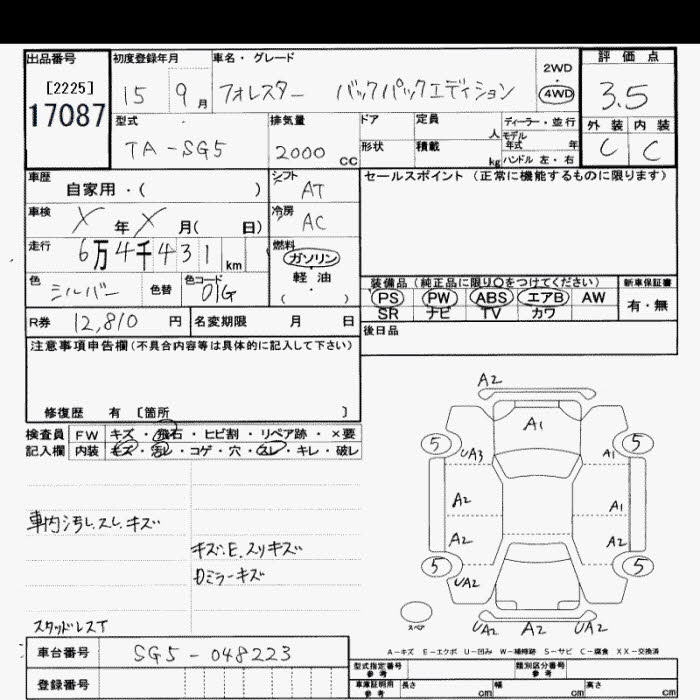 出品番号
[2225]
17087
初度登録年月
15 9月
車名・グレード
フォレスター バックパックエディション
2WD
・
4WD
評価点
3.5
外装 内装
C C
型式
TA-SG5
排気量
2000 CC
ドア
形状
定員
人
積載
kg
ディーラー・並行
モデル
年式 年
ハンドル 左・右
車歴
自家用・( )
シフト
AT
セールスポイント(正常に機能するものに限ります)
車検
X年X月( 日)
冷房
AC
走行
6万4千431km
燃料
ガソリン
・
軽油
( ・ )
色
シルバー
色替
色コード
01G
装備品(純正品に限り○をつけてください)
PS PW ABS エアB AW
SR ナビ TV カワ
新車保証書
有・無
R券 12,810 円
名変期限 月 日
後日品
注意事項申告欄(不具合内容等は具体的に記入して下さい)
修復歴 有 [箇所 ]
検査員
記入欄
FW キズ・飛石・ヒビ割・リペア跡・×要
内装 キズ・汚レ・コゲ・穴・スレ・キレ・破レ
車内汚レ.スレ.キズ
キズ.E.スリキズ
Dミラーキズ
スタッドレスT
A2
A1
5 5
UA3 A1
A2 A1
A2 A2
5 5
UA2
スペア
UA2 A2 UA2
A-キズ E-エクボ U-凹み W-補修跡 S-サビ C-腐食 XX-交換済
車台番号 SG5-048223
登録番号
型式指定番号
参考
類別区分番号
参考
車庫証明用
参考
長さ cm 幅 cm 高さ cm